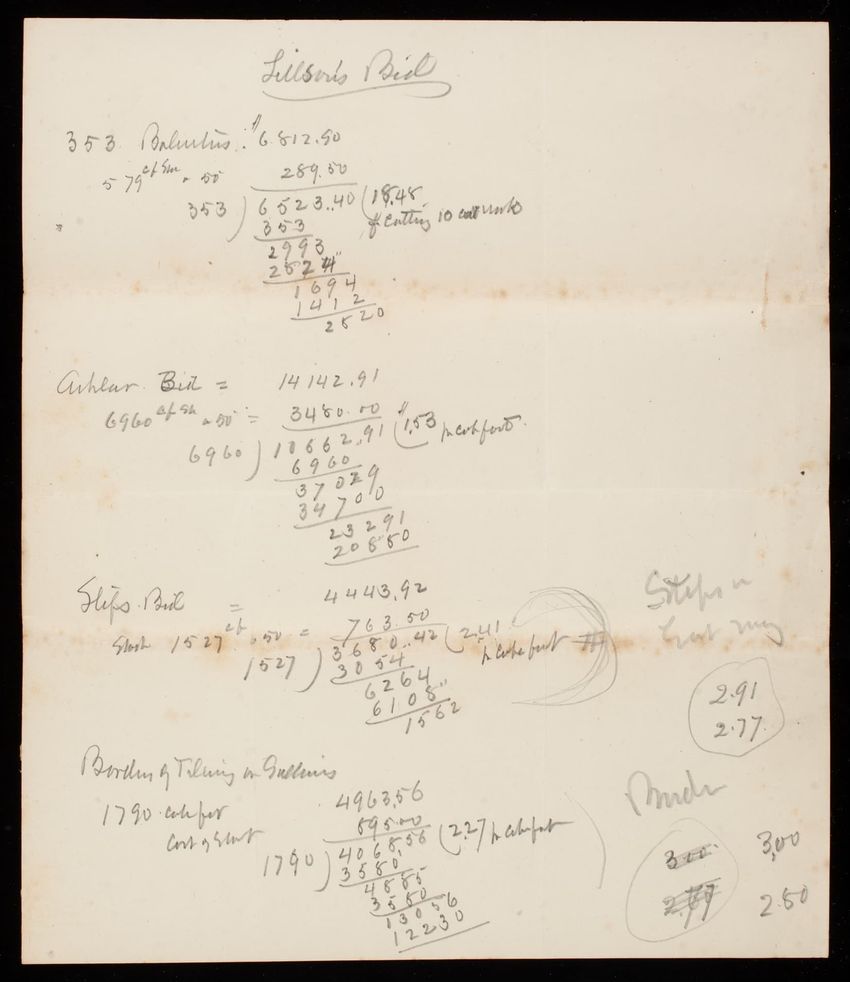 Sillson's Bid
353 Balusters : $6.812.90
579 c.f. Stn a 50 289.50
353 ) 6523.40 ( 18.48
353 cutting 10
2993
2824
1694
1412
2820
Ashlar Bid = 14142.91
6960 c.f. Stn a 50 = 3480.00
6960 ) 10662.91 ( $1,53 pr cub foot
6960
37029
34700
23291
20880
Steps Bid = 4443.92
Stock 1527 c.f. a 50 = 763.50
1527 ) 3680.42 ( 2.41 pr cube foot
3054
6264
6108
1562
Steps
2.91
2.77
Border of Tileing in Galleries
1790 cube feet 4963,56
Cost of Stock 895.00
1790 ) 4068,56 ( 2.27 pr cube foot
3580
4885
3580
13056
12230
3.00 3,00
2.80